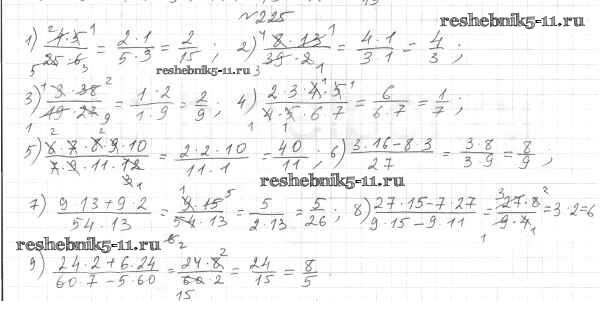 №225
reshebnik5-11.ru
1) 4·5/25·6 = 2·1/5·3 = 2/15 ; 2) 8·13/39·2 = 4·1/3·1 = 4/3 ;
reshebnik5-11.ru
3) 9·38/19·27 = 1·2/1·9 = 2/9 ; 4) 2·3·4·5/4·5·6·7 = 6/6·7 = 1/7 ;
5) 6·7·8·9·10/7·9·11·12 = 2·2·10/11·1 = 40/11 ; 6) 3·16-8·3/27 = 3·8/3·9 = 8/9 ;
reshebnik5-11.ru
7) 9·13+9·2/54·13 = 9·15/54·13 = 5/2·13 = 5/26 ; 8) 27·15-7·27/9·15-9·11 = 27·8/9·4 = 3·2=6
reshebnik5-11.ru
9) 24·2+6·24/60·7-5·60 = 24·8/60·2 = 24/15 = 8/5